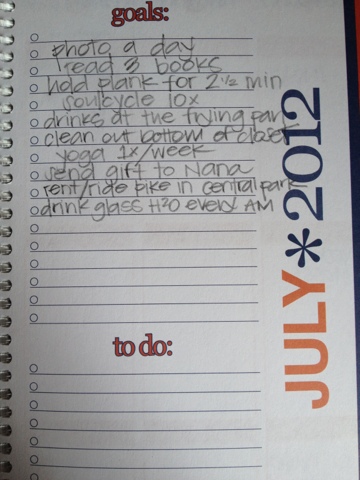 goals:
photo a day
read 3 books
hold plank for 2 1/2 min
soulcycle 10x
drinks at the frying pan
clean out bottom of closet
yoga 1x/week
send gift to Nana
rent/ride bike in central park
drink glass H2O every AM
to do:
JULY*2012